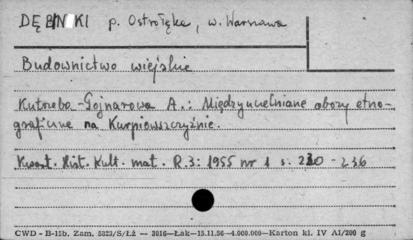 DĘBINKI p. Ostrołęka, w. Warszawa
Budownictwo wiejskie
Kutrzeba-Pojnarowa A.: Międzyuczelniane obozy etno-
graficzne na Kurpiowszczyźnie.
Kwart. Hist. Kult. mat. R.3: 1955 nr 1 s. 230 - 236
CWD - B-15b. Zam. 5823/S/Łż — 3016—Łak—15.11.56—4.000.000—Karton kl. IV A1/200 g